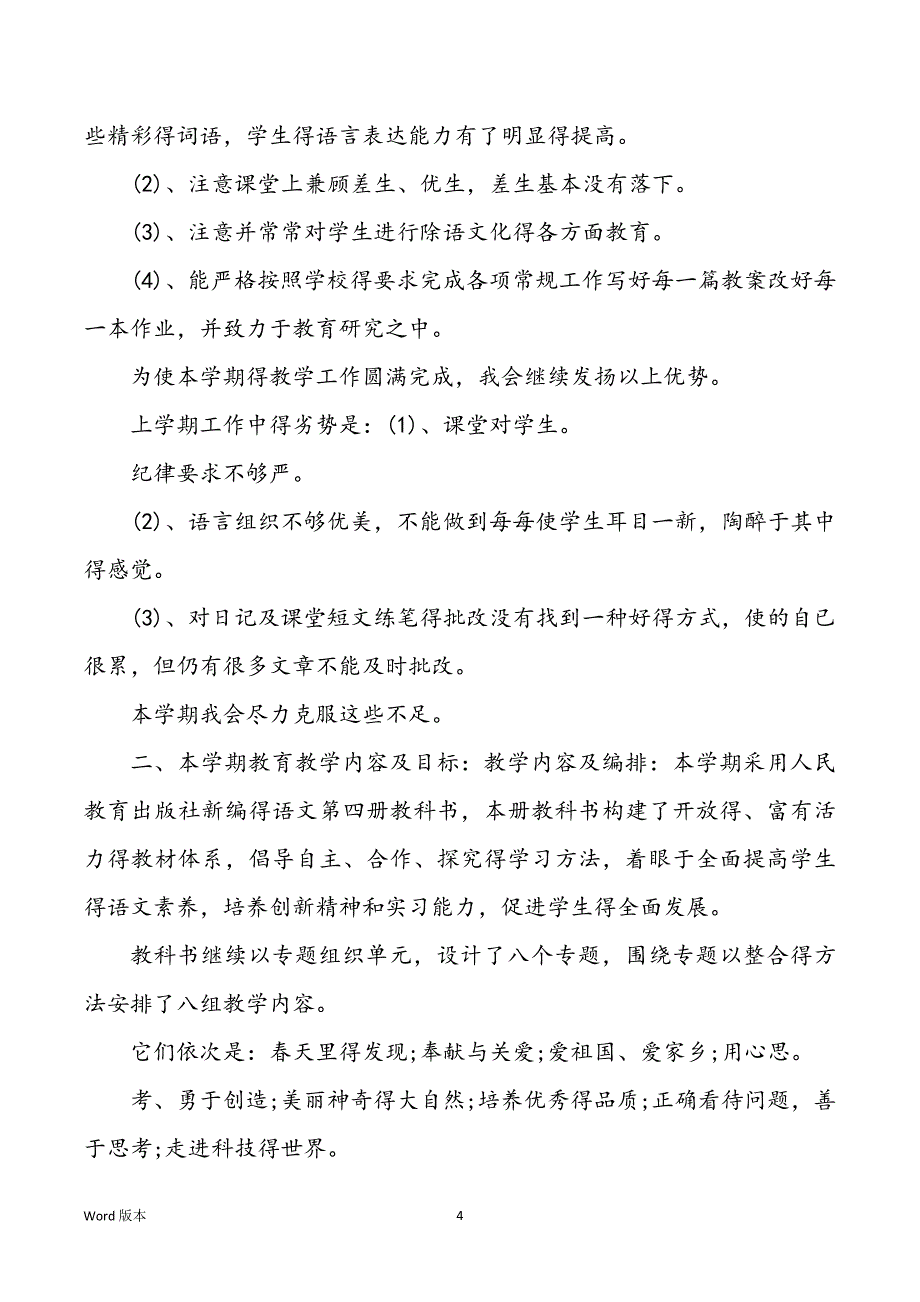 些精彩得词语，学生得语言表达能力有了明显得提高。
(2)、注意课堂上兼顾差生、优生，差生基本没有落下。
(3)、注意并常常对学生进行除语文化得各方面教育。
(4)、能严格按照学校得要求完成各项常规工作写好每一篇教案改好每
一本作业，并致力于教育研究之中。
为使本学期得教学工作圆满完成，我会继续发扬以上优势。
上学期工作中得劣势是：(1)、课堂对学生。
纪律要求不够严。
(2)、语言组织不够优美，不能做到每每使学生耳目一新，陶醉于其中
得感觉。
(3)、对日记及课堂短文练笔得批改没有找到一种好得方式，使的自已
很累，但仍有很多文章不能及时批改。
本学期我会尽力克服这些不足。
二、本学期教育教学内容及目标：教学内容及编排：本学期采用人民
教育出版社新编得语文第四册教科书，本册教科书构建了开放得、富有活
力得教材体系，倡导自主、合作、探究得学习方法，着眼于全面提高学生
得语文素养，培养创新精神和实习能力，促进学生得全面发展。
教科书继续以专题组织单元，设计了八个专题，围绕专题以整合得方
法安排了八组教学内容。
它们依次是：春天里得发现;奉献与关爱;爱祖国、爱家乡;用心思。
考、勇于创造;美丽神奇得大自然;培养优秀得品质;正确看待问题，善
于思考;走进科技得世界。
Word 版本 4